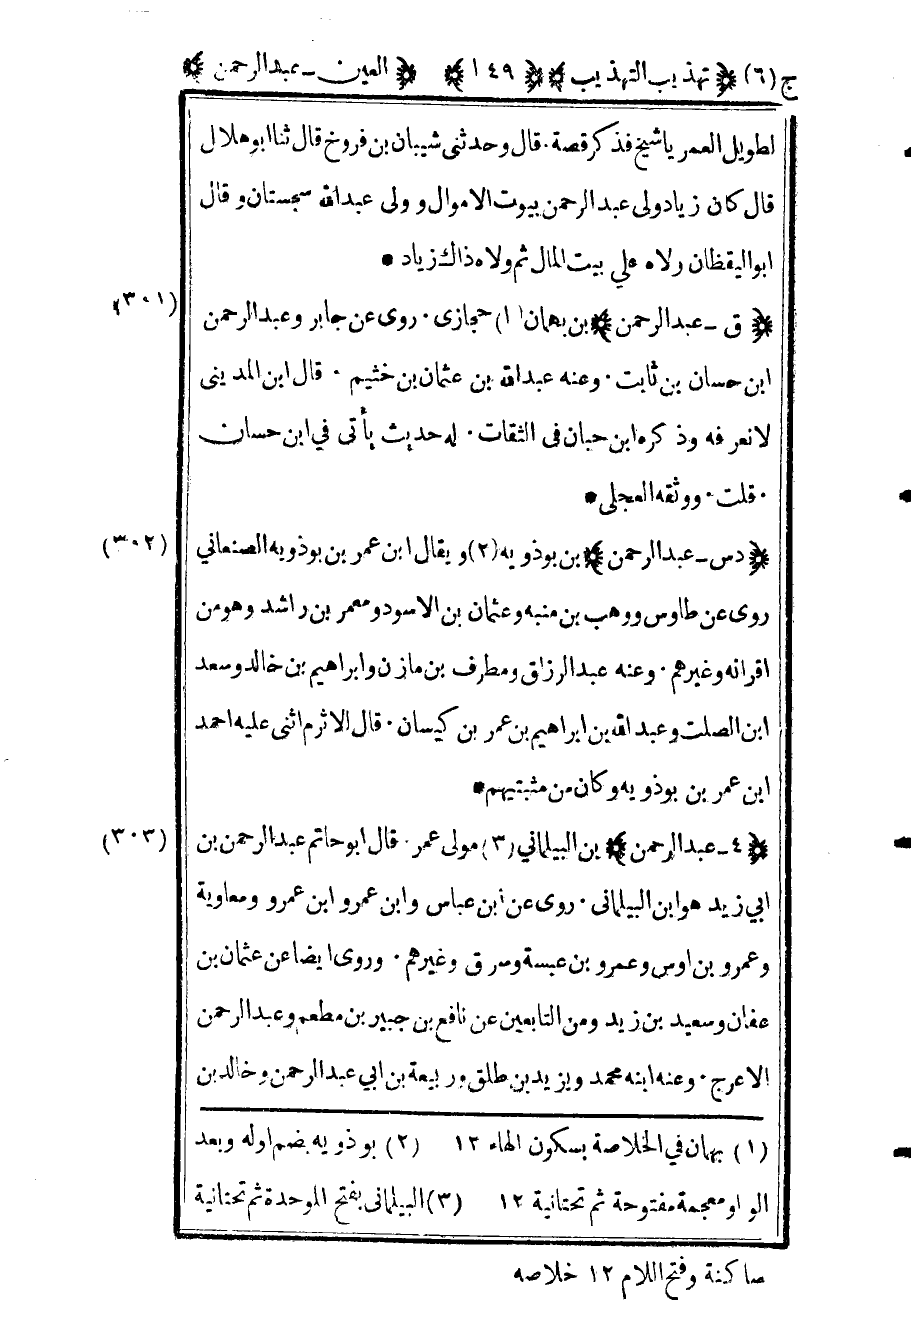 ج (٦) ﴿ تهذيب التهذيب ﴾ ﴿ ١٤٩ ﴾ ﴿ العين - عبدالرحمن ﴾
لطويل العمر ياشيخ فذكر قصة . قال وحدثنى شيبان بن فروخ قال ثنا ابوهلال
قال كان زياد ولى عبد الرحمن بيوت الاموال و ولى عبدالله سجستان و قال
ابو اليقظان ولاه على بيت المال ثم ولاه ذاك زياد •
(٣٠١)
﴿ ق - عبدالرحمن ﴾ بن بهمان (١) حجازى . روى عن جابر وعبدالرحمن
ابن حسان بن ثابت . وعنه عبدالله بن عثمان بن خثيم . قال ابن المدينى
لا نعرفه وذكره ابن حبان فى الثقات . له حديث يأتى في ابن حسان
. قلت . ووثقه العجلى •
(٣٠٢)
﴿ دس - عبدالرحمن ﴾ بن بوذويه (٢) و يقال ابن عمر بن بوذويه الصنعاني
روى عن طاوس ووهب بن منبه وعثمان بن الاسود ومعمر بن راشد وهو من
اقرانه وغيرهم . وعنه عبد الرزاق ومطرف بن مازن وابراهيم بن خالد وسعد
ابن الصلت وعبد الله بن ابراهيم بن عمر بن كيسان . قال الاثرم اثنى عليه احمد
ابن عمر بن بوذويه وكان من مثبتيهم •
(٣٠٣)
﴿ ٤ - عبدالرحمن ﴾ بن البيلماني (٣) مولى عمر . قال ابو حاتم عبدالرحمن بن
ابي زيد هو ابن البيلمانى . روى عن ابن عباس وابن عمر وابن عمرو ومعاوية
وعمرو بن اوس وعمرو بن عبسة وسرق وغيرهم . وروى ايضا عن عثمان بن
عفان وسعيد بن زيد ومن التابعين عن نافع بن جبير بن مطعم وعبدالرحمن
الاعرج . وعنه ابنه محمد ويزيد بن طلق وربيعة بن ابي عبدالرحمن وخالد بن
(١) بهمان في الخلاصة بسكون الهاء ١٢ (٢) بوذويه بضم اوله وبعد
الواو معجمة مفتوحة ثم تحتانية ١٢ (٣) البيلمانى بفتح الموحدة ثم تحتانية
ساكنة وفتح اللام ١٢ خلاصه